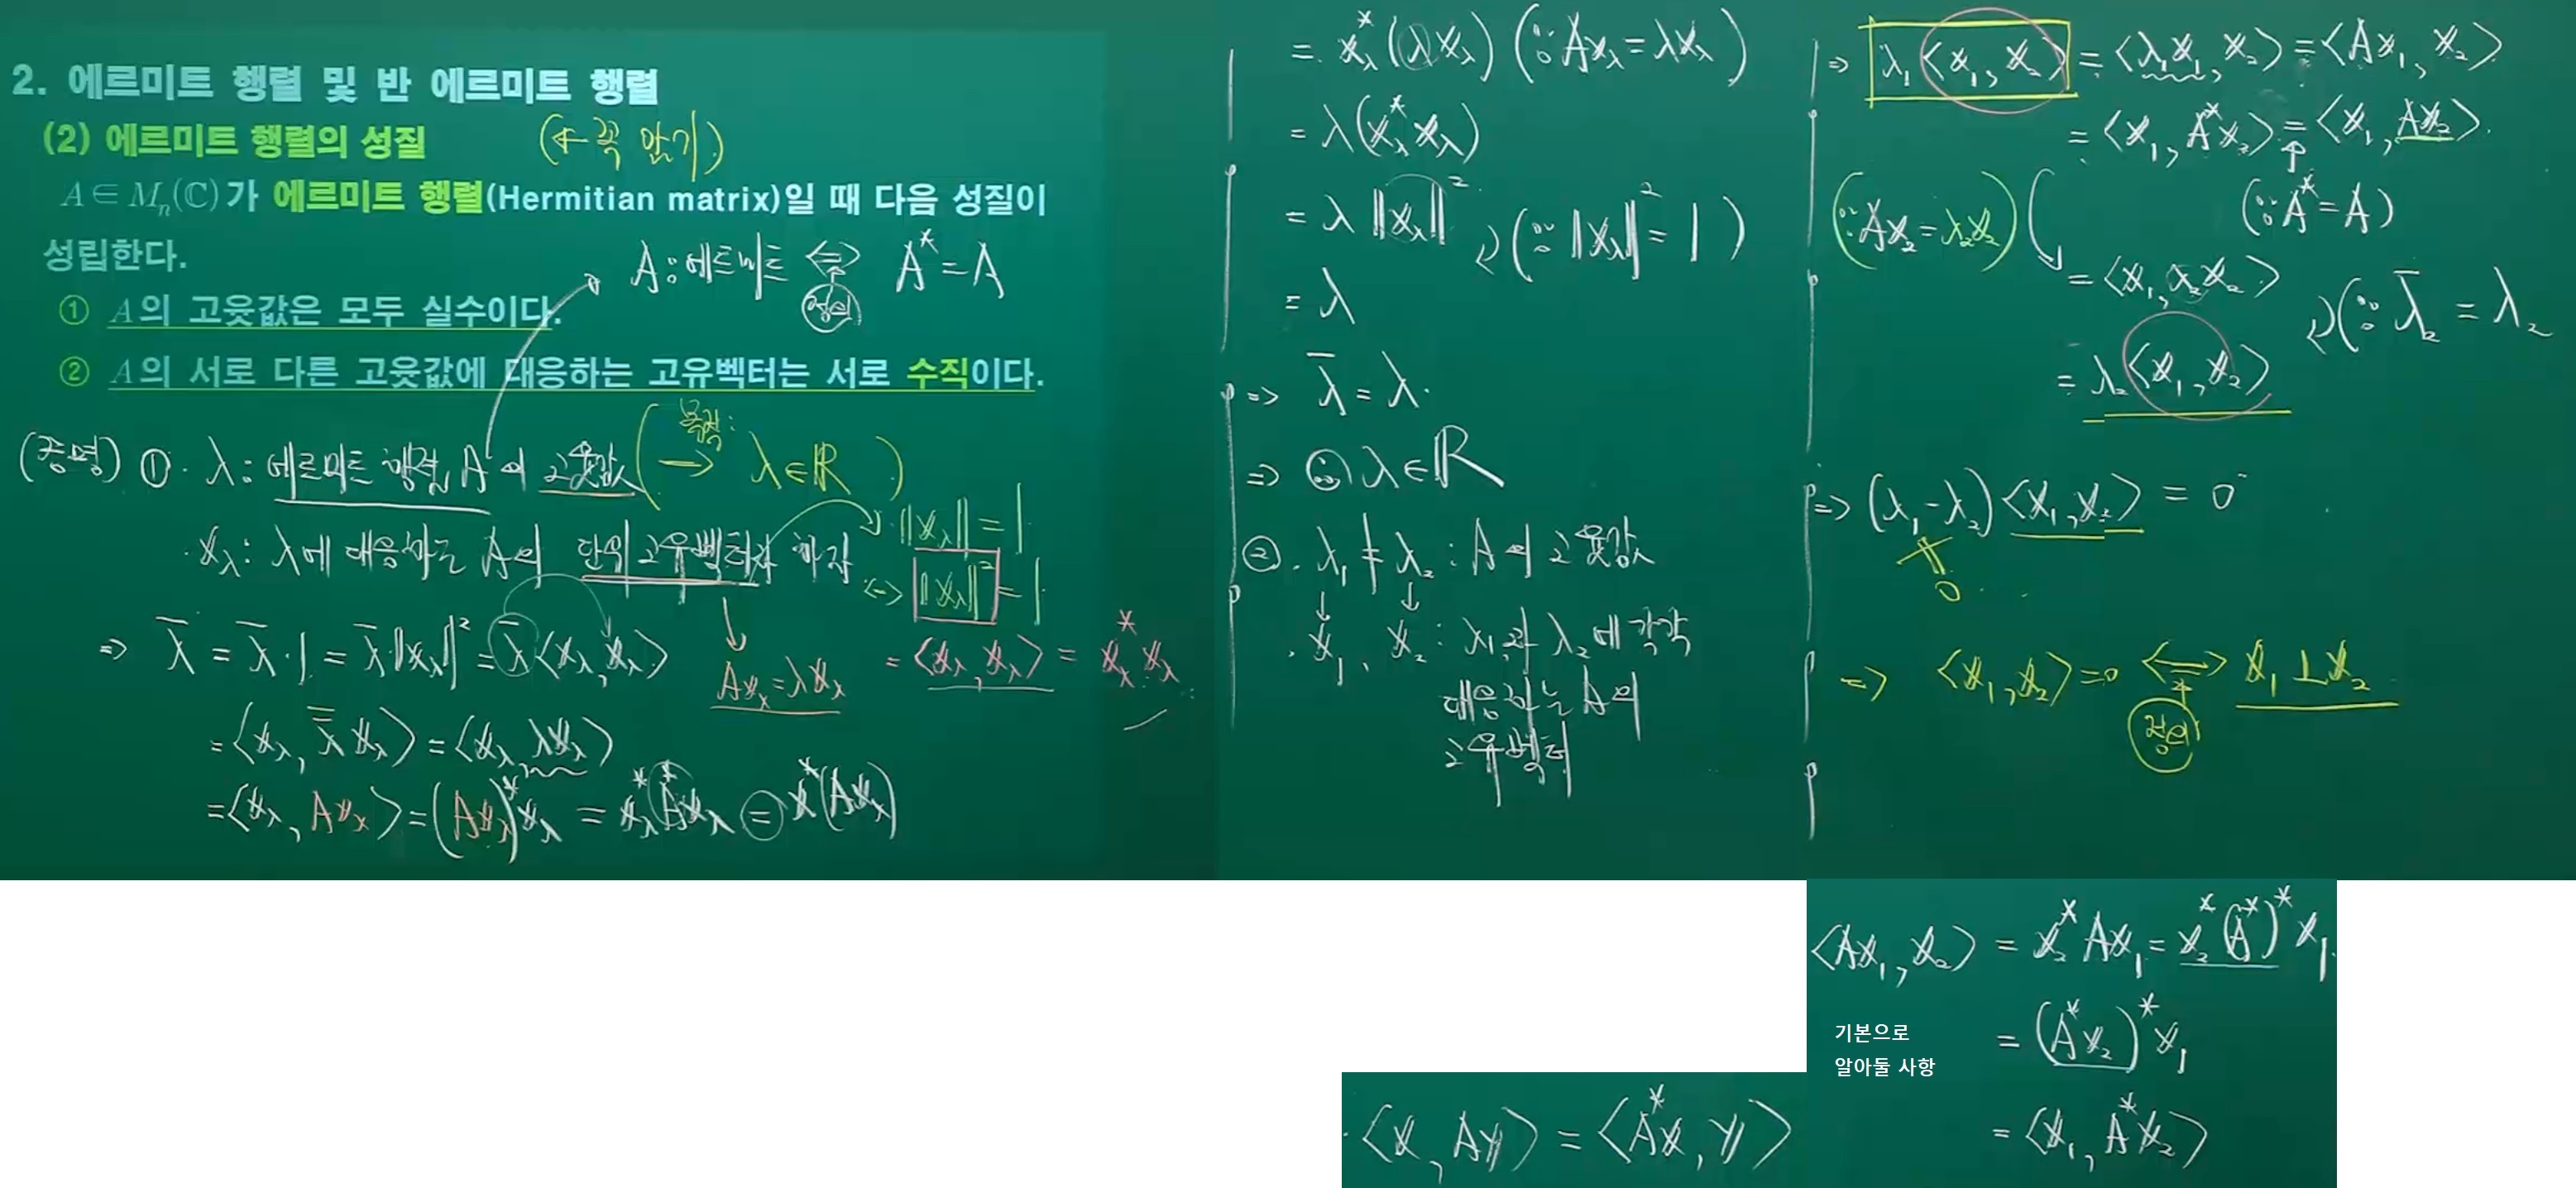 2. 에르미트 행렬 및 반 에르미트 행렬
(2) 에르미트 행렬의 성질 (← 꼭 암기)
A ∈ Mₙ(ℂ)가 에르미트 행렬(Hermitian matrix)일 때 다음 성질이
성립한다.
A : 에르미트 ⇔ A* = A
정의
① A의 고윳값은 모두 실수이다.
② A의 서로 다른 고윳값에 대응하는 고유벡터는 서로 수직이다.
(증명) ① · λ : 에르미트 행렬 A의 고윳값 ( 목적: → λ ∈ ℝ )
· x_λ : λ에 대응하는 A의 단위 고유벡터라 하자
‖x_λ‖ = 1
⇔ ‖x_λ‖² = 1
= <x_λ, x_λ> = x_λ* x_λ
Ax_λ = λx_λ
⇒ λ̄ = λ̄ · 1 = λ̄ ‖x_λ‖² = λ̄ <x_λ, x_λ>
= <x_λ, λ̿ x_λ> = <x_λ, λx_λ>
= <x_λ, Ax_λ> = (Ax_λ)* x_λ = x_λ* A* x_λ = x* (Ax_λ)
= x_λ* (λx_λ) (∵ Ax_λ = λx_λ)
= λ(x_λ* x_λ)
= λ ‖x_λ‖²
(∵ ‖x_λ‖² = 1)
= λ
⇒ λ̄ = λ.
⇒ ∴ λ ∈ ℝ
② · λ₁ ≠ λ₂ : A의 고윳값
↓ ↓
· x₁, x₂ : λ₁과 λ₂에 각각
대응하는 A의
고유벡터
⇒ λ₁<x₁, x₂> = <λ₁x₁, x₂> = <Ax₁, x₂>
= <x₁, A*x₂> = <x₁, Ax₂>.
(∵ A* = A)
(∵ Ax₂ = λ₂x₂)
= <x₁, λ₂x₂>
(∵ λ̄₂ = λ₂
= λ₂<x₁, x₂>
⇒ (λ₁ - λ₂) <x₁, x₂> = 0
≠
0
⇒ <x₁, x₂> = 0 ⇔ x₁ ⊥ x₂
정의
<Ax₁, x₂> = x₂* Ax₁ = x₂* (A*)* x₁
기본으로
알아둘 사항
= (A*x₂)* x₁
= <x₁, A*x₂>
· <x, Ay> = <A*x, y>